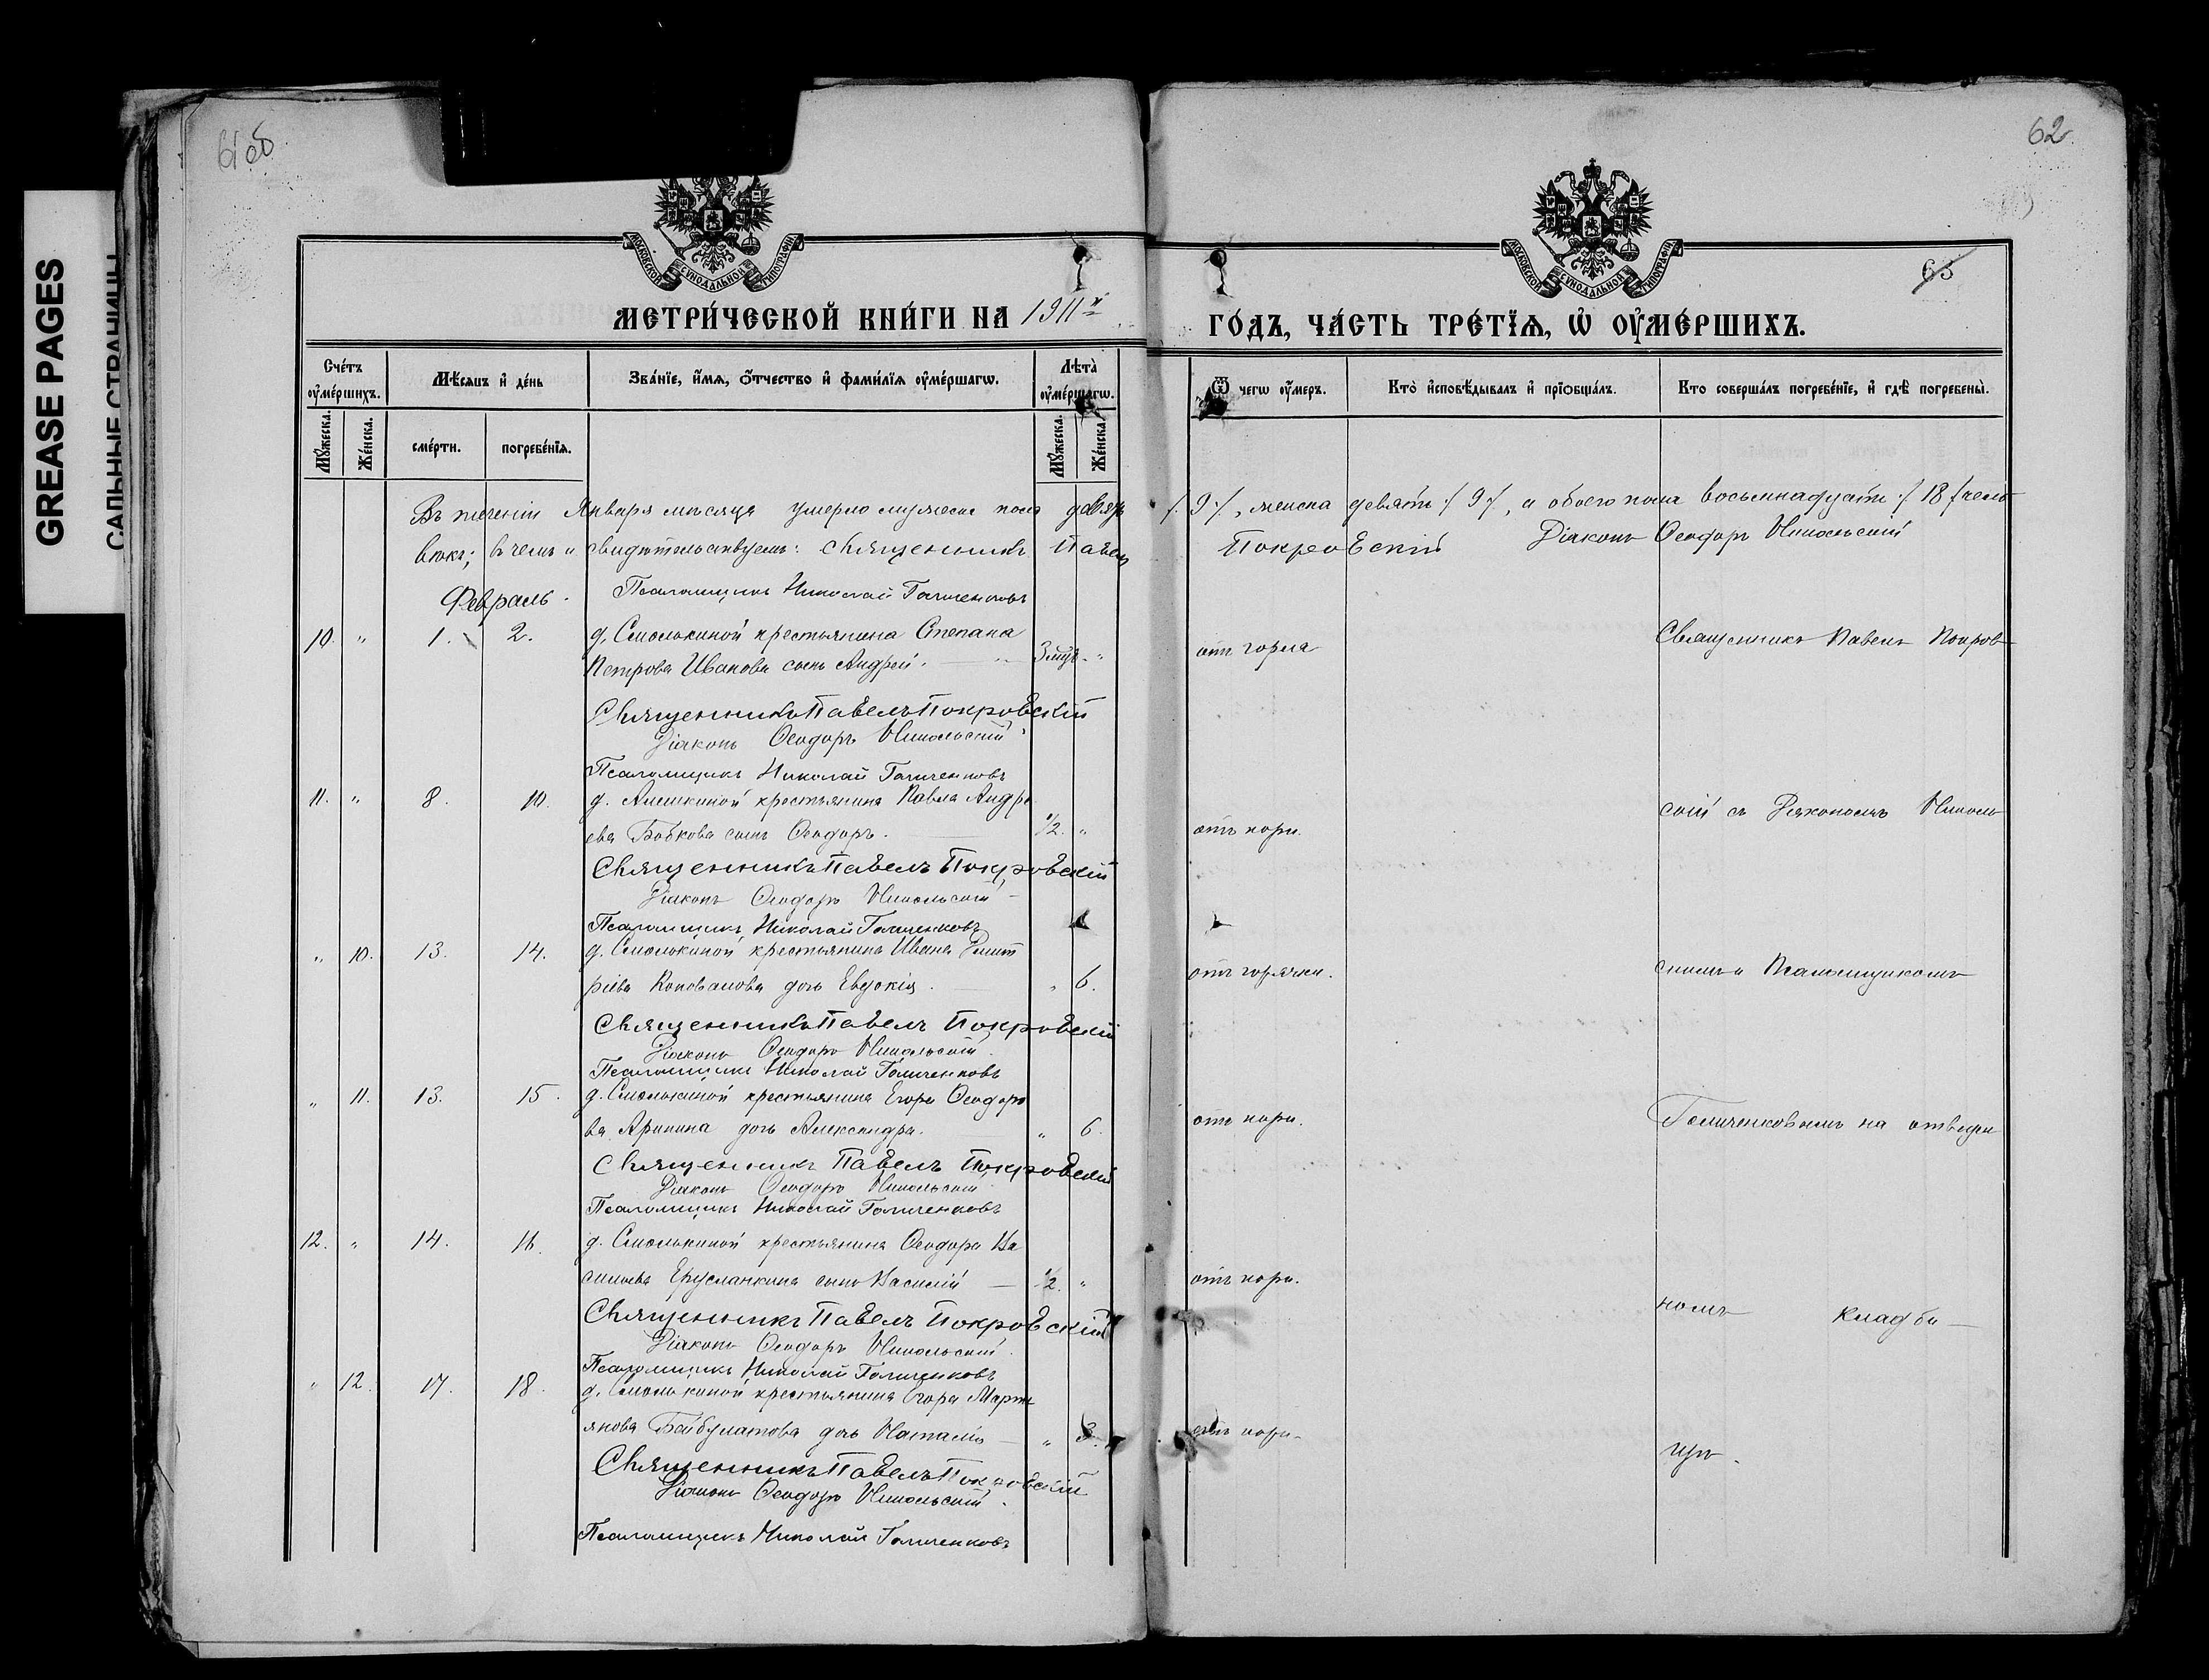 GREASE PAGES
САЛЬНЫЕ СТРАНИЦЫ
61об
62.
МОСКОВСКОЙ СѴНОДАЛЬНОЙ ТИПОГРАФІИ
МОСКОВСКОЙ СѴНОДАЛЬНОЙ ТИПОГРАФІИ
63
МЕТРИ́ЧЕСКОЙ КНИ́ГИ НА 1911й ГО́ДЪ, ЧА́СТЬ ТРЕ́ТЇѦ, Ѡ҆ ОУ҆МЕ́РШИХЪ.
Сче́тъ оу҆ме́ршихъ.
Мѣ́сѧцъ и҆ де́нь
Зва́нїе, и҆́мѧ, ѻ҆́тчество и҆ фами́лїѧ оу҆ме́ршагѡ.
Лѣ́та оу҆ме́ршагѡ.
Ѿ чегѡ̀ оу҆́меръ.
Кто̀ и҆сповѣ́дывалъ и҆ прїѡбща́лъ.
Кто̀ соверша́лъ погребе́нїе, и҆ гдѣ̀ погребены̀.
Мꙋ́жеска. Же́нска. сме́рти. погребе́нїѧ. Мꙋ́жеска. Же́нска.
Въ теченіи Января мѣсяца умерло мужеска пола девять /. 9 /., женска девять /. 9 /., и обоего пола восемнадцать /. 18 / чело
вѣкъ; въ чемъ и свидѣтельствуемъ: Священникъ Павелъ Покровскій Діаконъ Ѳеодоръ Никольскій
Февраль. Псаломщикъ Николай Голиченковъ
10. " 1. 2. д. Смолькиной крестьянина Степана
Петрова Иванова сынъ Андрей. 3 мѣс. " отъ горла Священникъ Павелъ Покров
Священникъ Павелъ Покровскій
Діаконъ Ѳеодоръ Никольскій
Псаломщикъ Николай Голиченковъ
11. " 8. 10. д. Алешкиной крестьянина Павла Андре
ева Бобкова сынъ Ѳеодоръ. 1/2. " отъ кори. скій съ Діакономъ Николь
Священникъ Павелъ Покровскій
Діаконъ Ѳеодоръ Никольскій
Псаломщикъ Николай Голиченковъ
" 10. 13. 14. д. Смолькиной крестьянина Ивана Димит
ріева Коновалова дочь Евдокія. " 6. отъ горячки. скимъ и Псаломщикомъ
Священникъ Павелъ Покровскій
Діаконъ Ѳеодоръ Никольскій
Псаломщикъ Николай Голиченковъ
" 11. 13. 15. д. Смолькиной крестьянина Егора Ѳеодоро
ва Арипина дочь Александра. " 6. отъ кори. Голиченковымъ на отведен
Священникъ Павелъ Покровскій
Діаконъ Ѳеодоръ Никольскій
Псаломщикъ Николай Голиченковъ
12. " 14. 16. д. Смолькиной крестьянина Ѳеодора Ва
сильева Ерусланкина сынъ Василій 1/2. " отъ кори.
номъ кладби
Священникъ Павелъ Покровскій
Діаконъ Ѳеодоръ Никольскій
Псаломщикъ Николай Голиченковъ
" 12. 17. 18. д. Смолькиной крестьянина Егора Марть
янова Байбулатова дочь Наталія " 3. отъ кори.
щѣ.
Священникъ Павелъ Покровскій
Діаконъ Ѳеодоръ Никольскій
Псаломщикъ Николай Голиченковъ